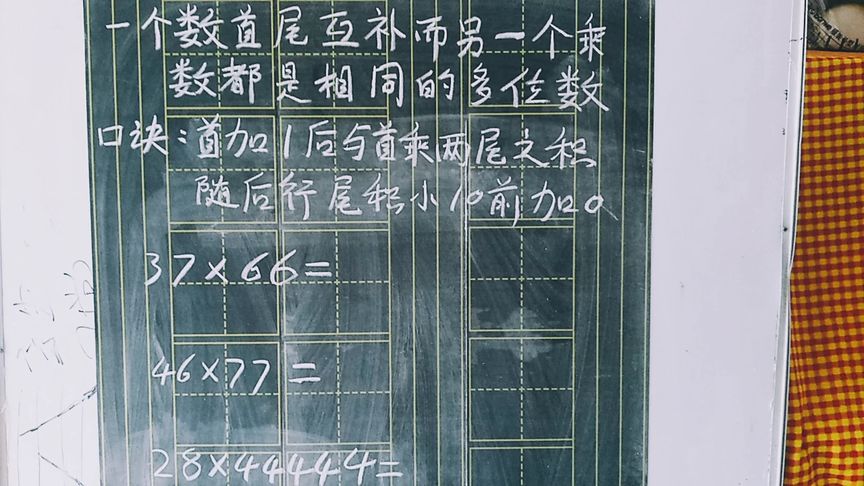 一个数首尾互补而另一个乘
数都是相同的多位数
口诀:首加1后与首乘两尾之积
随后行尾积小10前加0
37×66=
46×77=
28×44444=